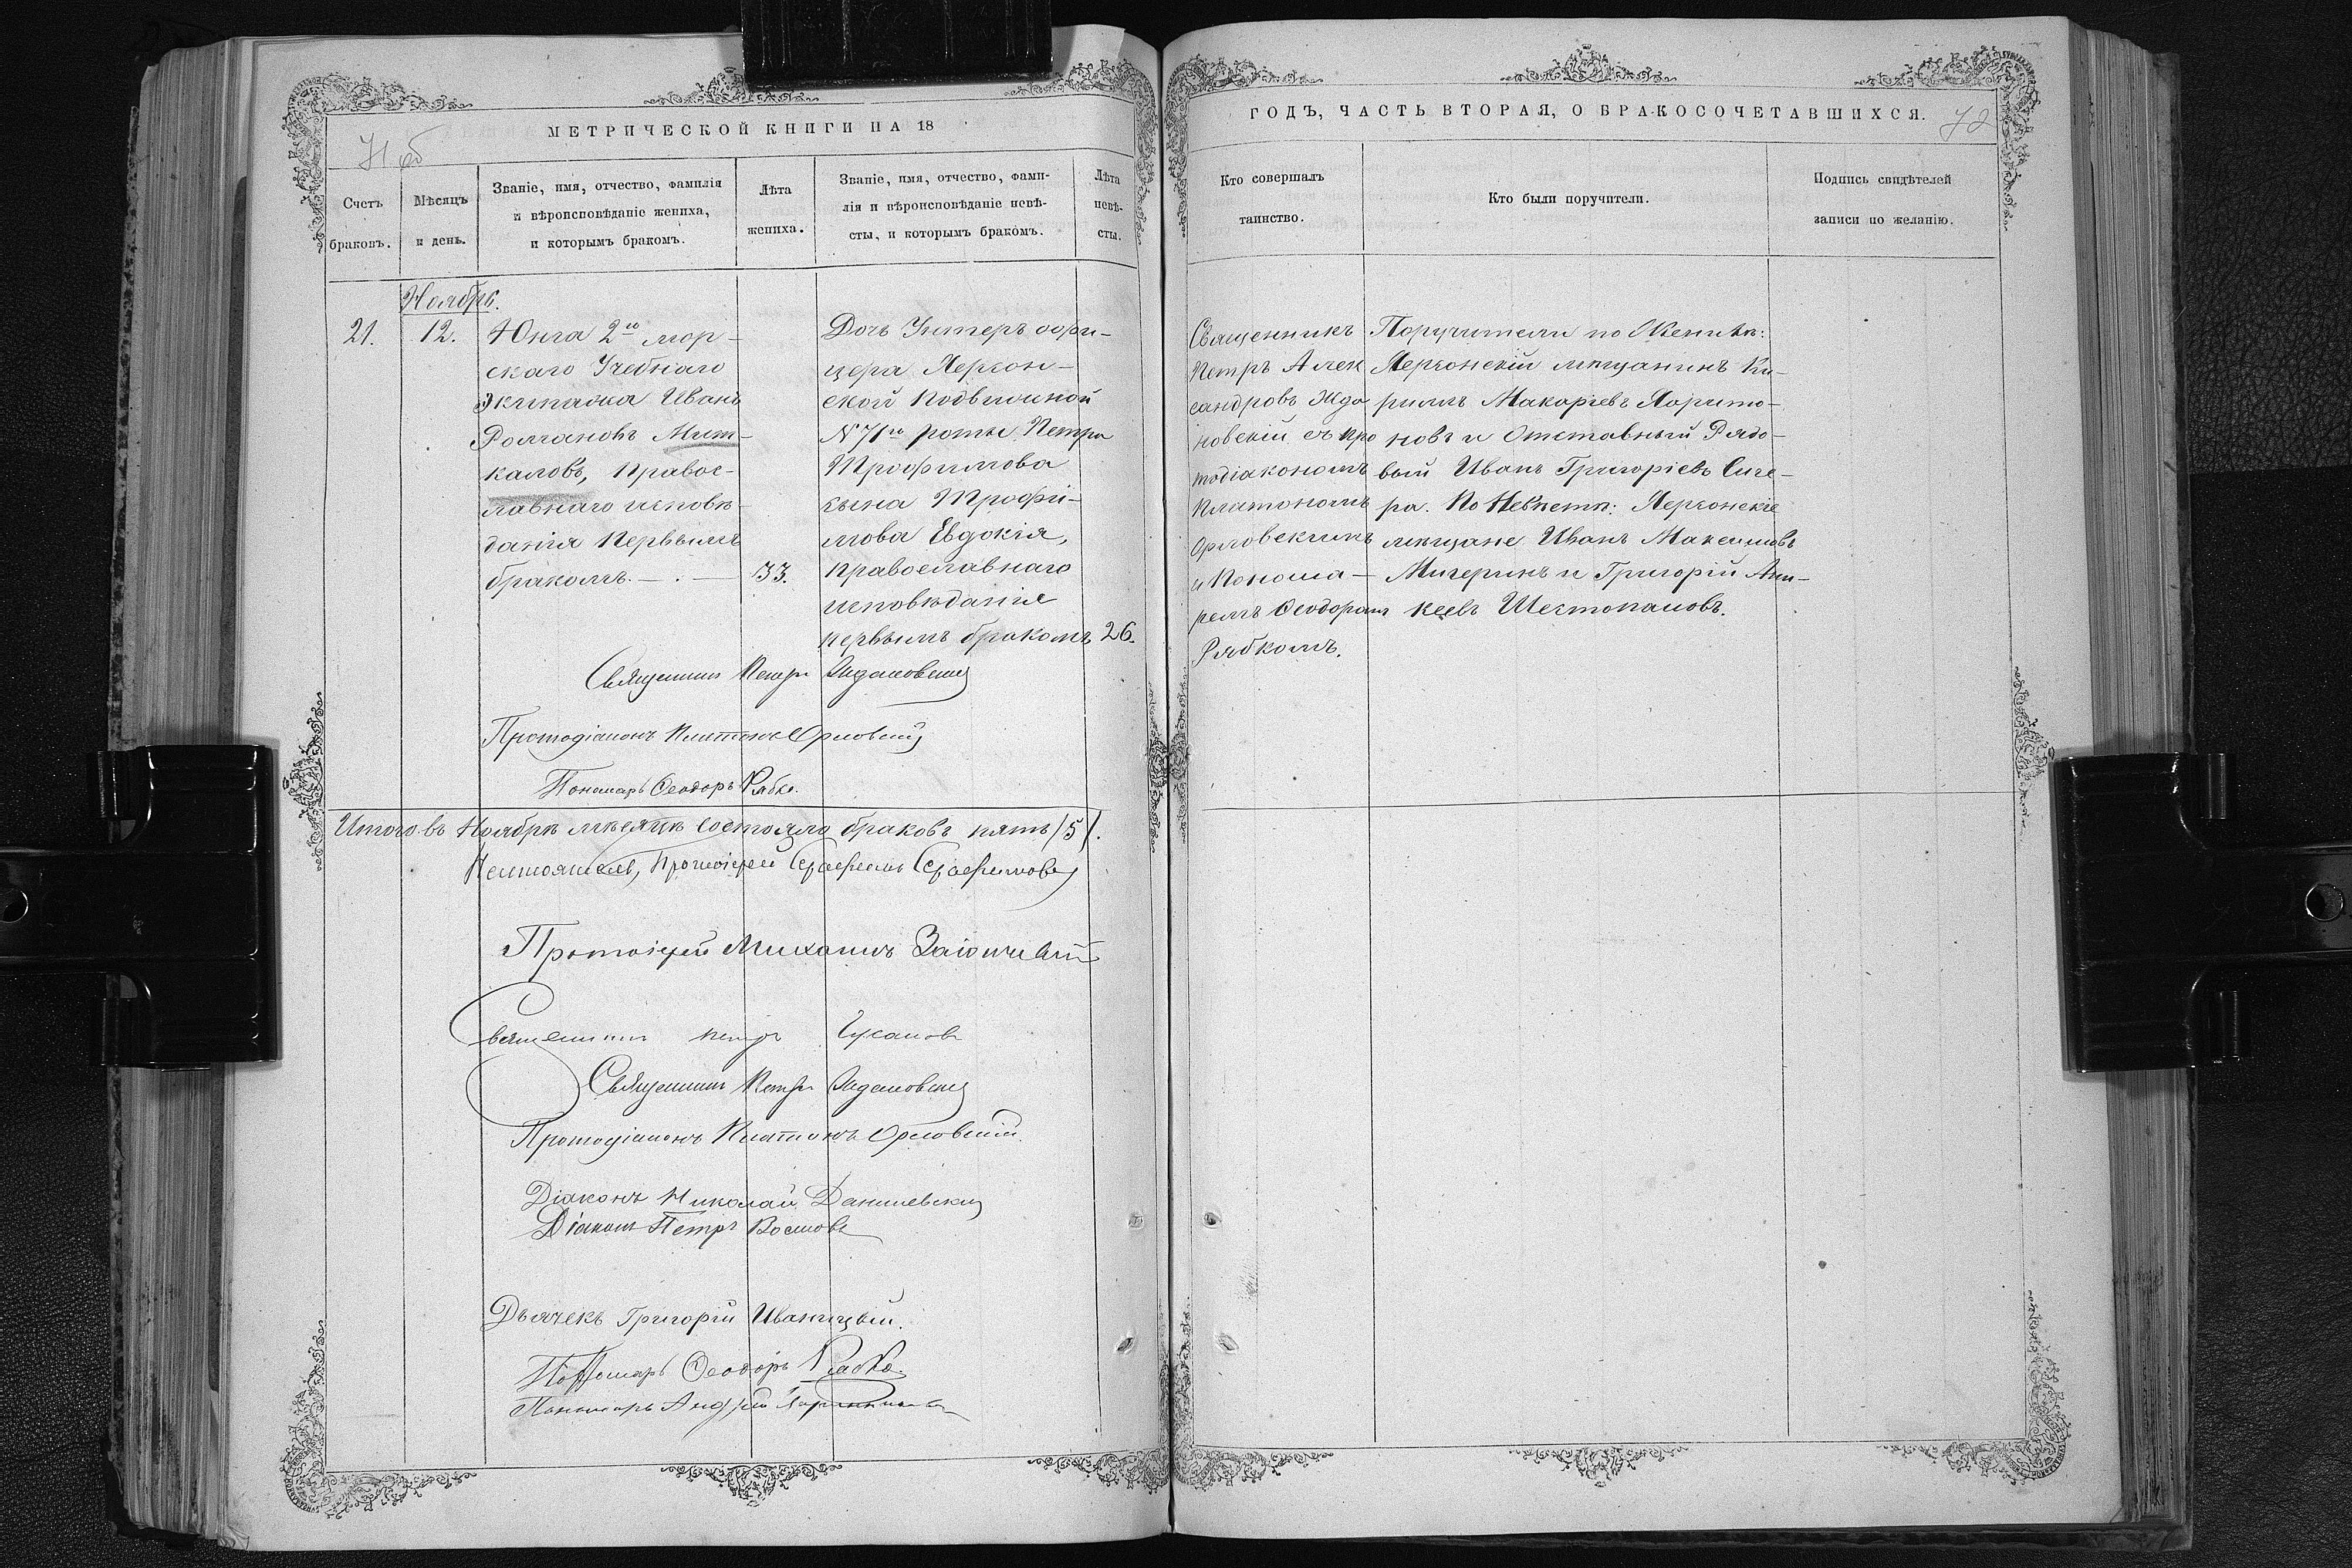 МЕТРИЧЕСКОЙ КНИГИ НА 18
71 об
Счетъ браковъ.
Мѣсяцъ и день.
Званіе, имя, отчество, фамилія
и вѣроисповѣданіе жениха,
и которымъ бракомъ.
Лѣта
жениха.
Званіе, имя, отчество, фами-
лія и вѣроисповѣданіе невѣ-
сты, и которымъ бракомъ.
Лѣта
невѣ-
сты.
Ноябрь.
21.
12.
Юнга 2го мор-
скаго Учебнаго
Экипажа Иванъ
Мит-
каловъ, Правос-
лавнаго исповѣ-
данія Первымъ
бракомъ. — . — 33.
Дочь Унтеръ офи-
цера Херсон-
ской подвижной
N 71й роты Петра
Трофимова
сына Трофи-
мова Евдокія,
православнаго
исповѣданія
первымъ бракомъ 26.
Священникъ Петръ Ждановскій
Протодіаконъ Платонъ Орловскій
Пономарь Ѳеодоръ Рябко.
Итого въ Ноябрѣ мѣсяцѣ состояло браковъ пять /5/.
Настоятель, Протоіерей Серафимъ Серафимовъ
Протоіерей Михаилъ
Священникъ Петръ
Священникъ Петръ Ждановскій
Протодіаконъ Платонъ Орловскій
Діаконъ Николай Данилевскій
Діаконъ Петръ
Дьячекъ Григорій Иваницкій.
Пономарь Ѳеодоръ Рябко.
Пономарь Андрей
ГОДЪ, ЧАСТЬ ВТОРАЯ, О БРАКОСОЧЕТАВШИХСЯ.
72
Кто совершалъ
таинство.
Кто были поручители.
Подпись свидѣтелей
записи по желанію.
Священникъ
Петръ Алек
сандровъ Жда
новскій съ про
тодіакономъ
Платономъ
Орловскимъ
и Понома-
ремъ Ѳеодоромъ
Рябкомъ.
Поручители по Женихѣ:
Херсонскій мѣщанинъ Ки-
риллъ Макаріевъ Харито-
новъ и Отставный Рядо-
вый Иванъ Григоріевъ Сиче-
ра. По Невѣстѣ: Херсонскіе
мѣщане Иванъ Максимовъ
Мичеринъ и Григорій Ани-
кеевъ Шестопаловъ.